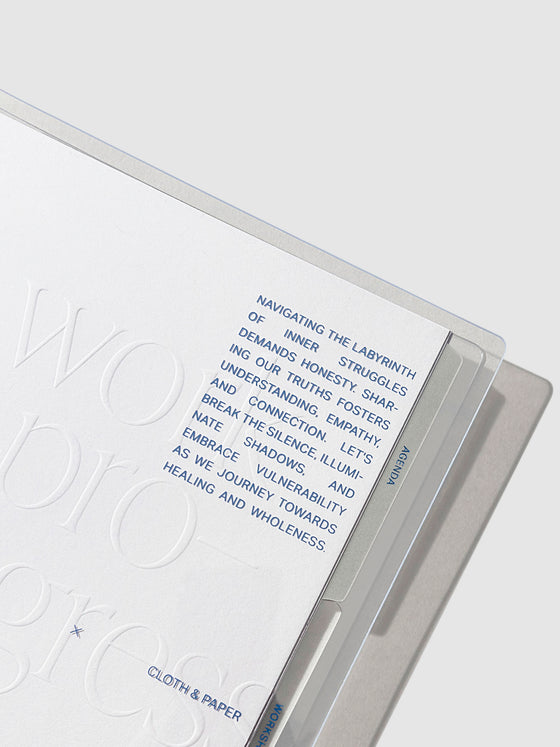 NAVIGATING THE LABYRINTH
OF INNER STRUGGLES
DEMANDS HONESTY. SHAR-
ING OUR TRUTHS FOSTERS
UNDERSTANDING, EMPATHY,
AND CONNECTION. LET'S
BREAK THE SILENCE, ILLUMI-
NATE SHADOWS, AND
EMBRACE VULNERABILITY
AS WE JOURNEY TOWARDS
HEALING AND WHOLENESS.
AGENDA
work
pro-
gress
CLOTH & PAPER